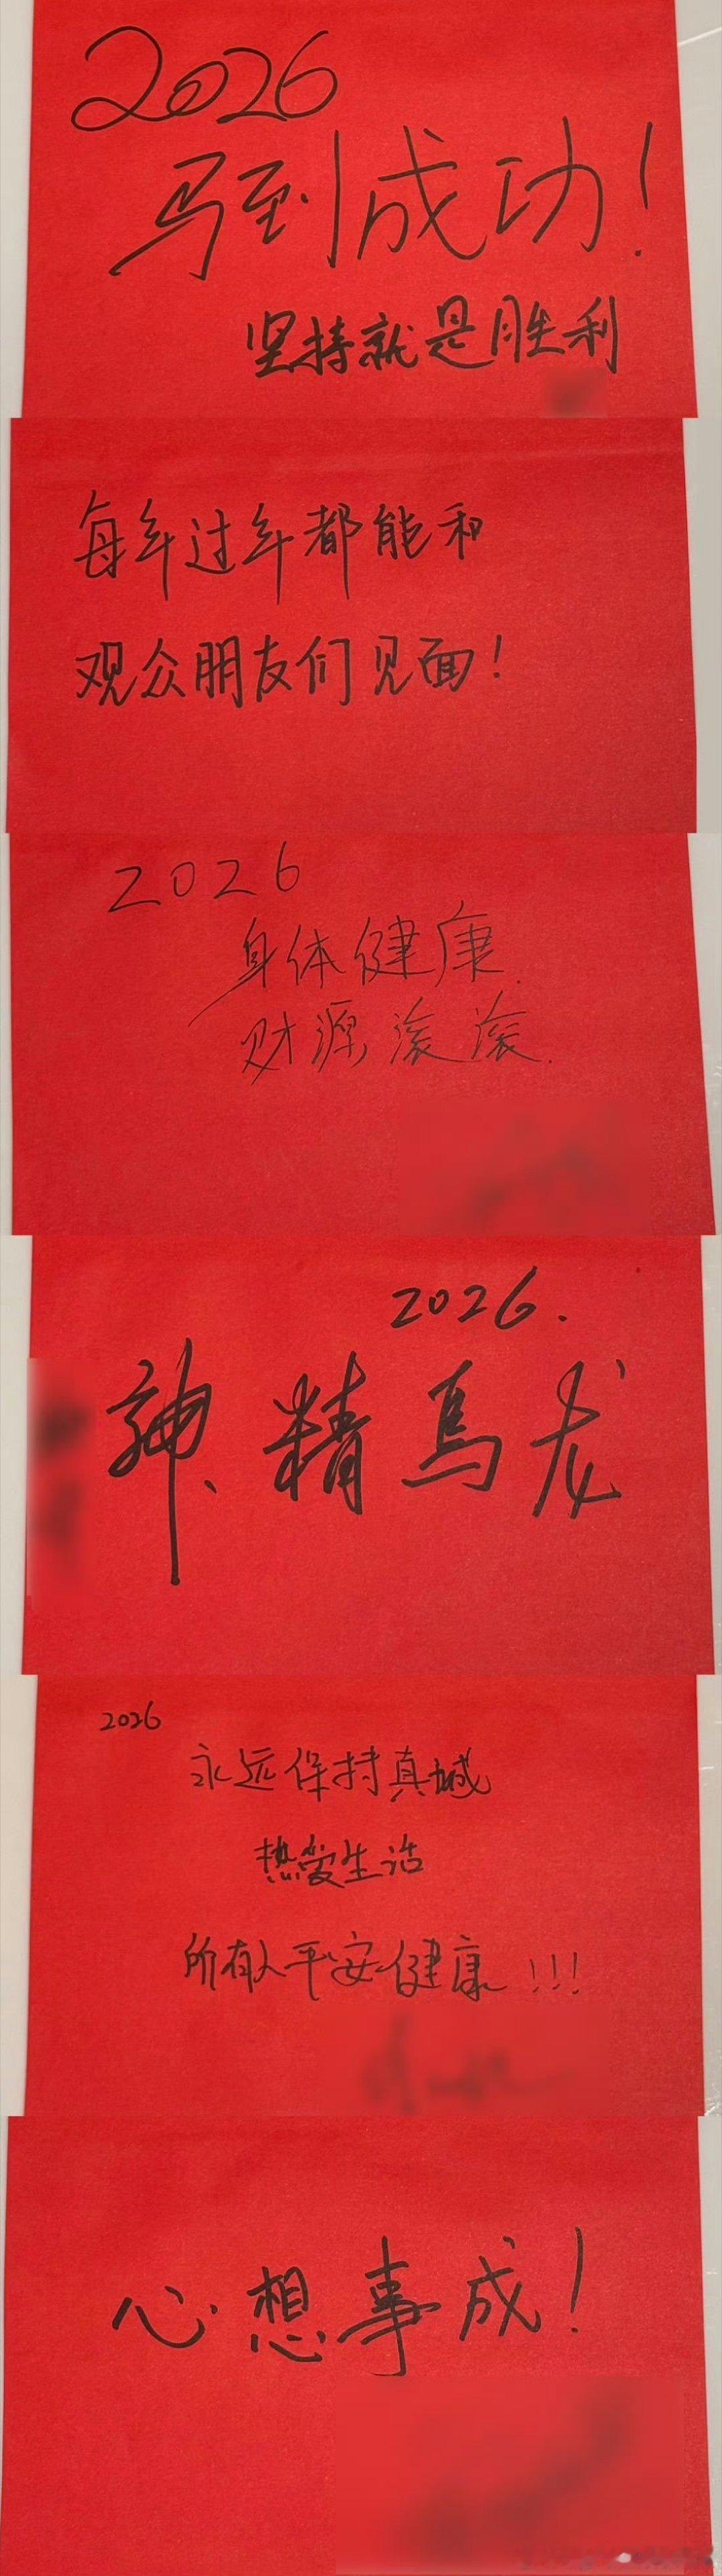 2026
马到成功!
坚持就是胜利
每年过年都能和
观众朋友们见面!
2026
身体健康.
财源滚滚.
2026.
神精馬龙
2026
永远保持真诚
热爱生活
所有人平安健康!!!
心想事成!